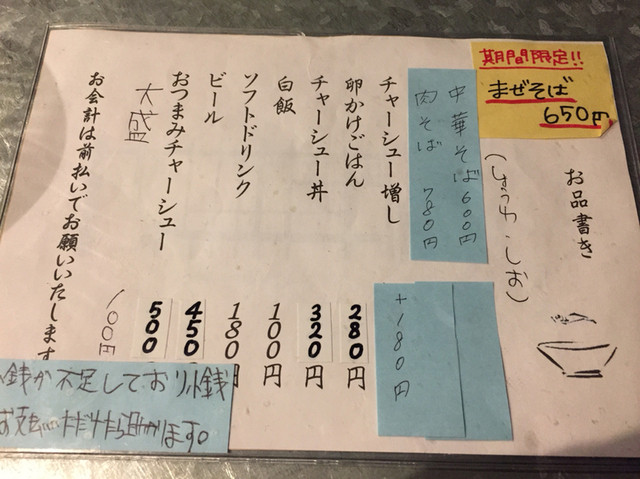 期間限定!!
まぜそば
650円
お品書き
(しょうゆ・しお)
中華そば 600円
肉そば 780円
チャーシュー増し +180円
卵かけごはん 280円
チャーシュー丼 320円
白飯 100円
ソフトドリンク 180円
ビール 450
おつまみチャーシュー 500
大盛 100円
お会計は前払いでお願いいたします
銭が不足しており小銭
助かります。